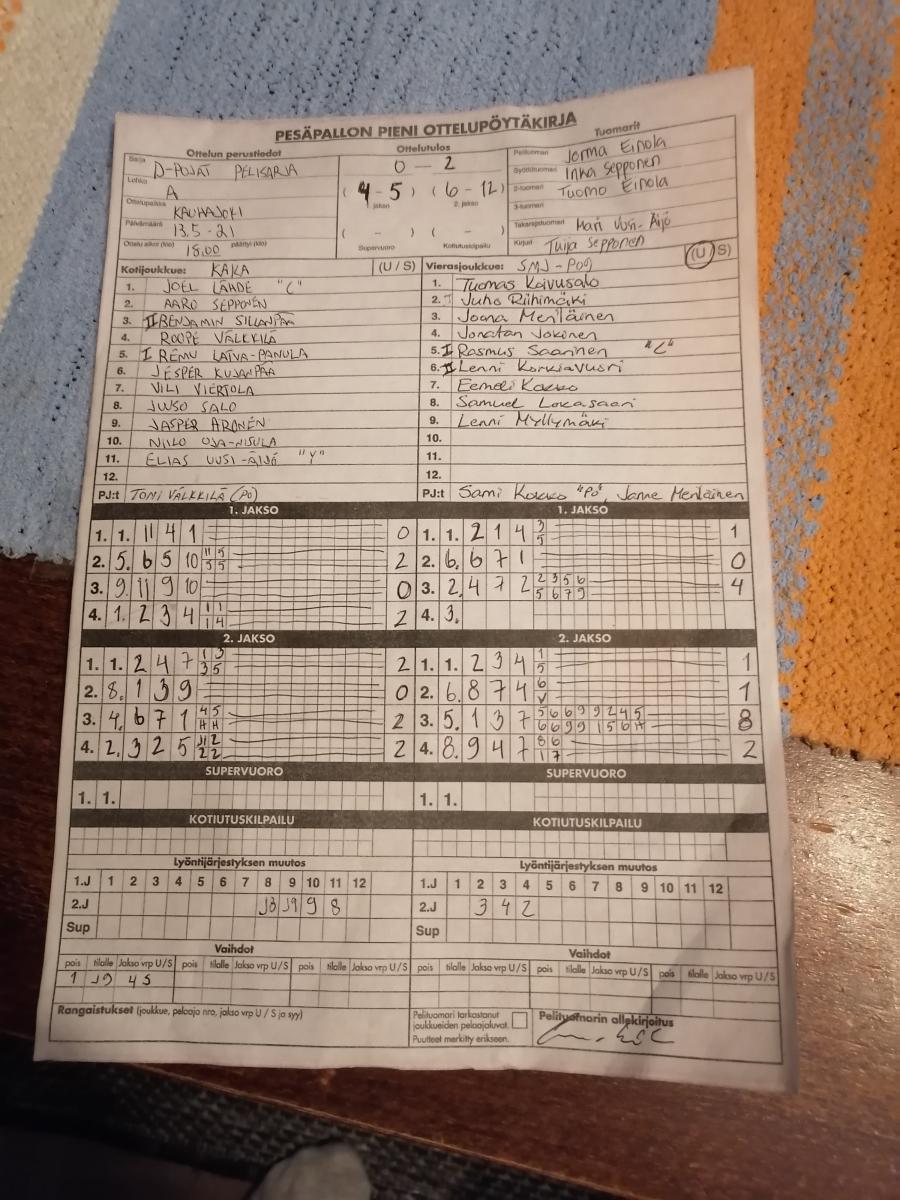 PESÄPALLON PIENI OTTELUPÖYTÄKIRJA
Ottelun perustiedot
Ottelutulos
Tuomarit
Sarja D-POJAT PELISARJA
Lohko A
Ottelupaikka KAUHAJOKI
Päivämäärä 13.5-21
Ottelu alkoi (klo) 18.00 päättyi (klo)
0 - 2
(4-5) (6-12)
1. jakso 2. jakso
( - ) ( - )
Supervuoro Kotiutuskilpailu
Pelituomari Jorma Einola
Syöttötuomari Inka Sepponen
2-tuomari Tuomo Einola
3-tuomari
Takarajatuomari Mari Uusi-Äijö
Kirjuri Tuija Sepponen
Kotijoukkue: KAKA (U / S)
1. JOEL LÄHDE "C"
2. AARO SEPPONEN
3. II BENJAMIN SILLANPÄÄ
4. ROOPE VÄLKKILÄ
5. I REMU LATVA-PANULA
6. JESPER KUJANPÄÄ
7. VILI VIERTOLA
8. JUSO SALO
9. JASPER ARONEN
10. NIILO OJA-NISULA
11. ELIAS UUSI-ÄIJÖ "Y"
12.
PJ:t TONI VÄLKKILÄ (PO)
Vierasjoukkue: SMJ-Poo (U / S)
1. Tuomas Koivusalo
2. Juho Riihimäki
3. Joona Mentäinen
4. Jonatan Jokinen
5. I Rasmus Saarinen "C"
6. II Lenni Korkiavuori
7. Eemeli Kokko
8. Samuel Lokasaari
9. Lenni Myllymäki
10.
11.
12.
PJ:t Sami Kokko "PO", Janne Mentäinen
1. JAKSO
1. 1. 11 4 1 0
2. 5. 6 5 10 11 5 3 5 2
3. 9. 11 9 10 0
4. 1. 2 3 4 1 1 1 4 2
1. JAKSO
1. 1. 2 1 4 3 5 1
2. 6. 6 7 1 0
3. 2. 4 7 2 2 3 5 6 5 6 7 9 4
4. 3.
2. JAKSO
1. 1. 2 4 7 1 3 3 5 2
2. 8. 1 3 9 0
3. 4. 6 7 1 4 5 H H 2
4. 2. 3 2 5 11 2 2 2 2
2. JAKSO
1. 1. 2 3 4 1 5 1
2. 6. 8 7 4 6 V 1
3. 5. 1 3 7 5 6 6 9 9 2 4 5 6 6 9 9 1 5 6 H 8
4. 8. 9 4 7 8 6 1 7 2
SUPERVUORO
1. 1.
SUPERVUORO
1. 1.
KOTIUTUSKILPAILU
KOTIUTUSKILPAILU
Lyöntijärjestyksen muutos
1.J 1 2 3 4 5 6 7 8 9 10 11 12
2.J 9 8
Sup
Lyöntijärjestyksen muutos
1.J 1 2 3 4 5 6 7 8 9 10 11 12
2.J 3 4 2
Sup
Vaihdot
pois tilalle Jakso vrp U/S pois tilalle Jakso vrp U/S pois tilalle Jakso vrp U/S
1 4 5
Vaihdot
pois tilalle Jakso vrp U/S pois tilalle Jakso vrp U/S pois tilalle Jakso vrp U/S
Rangaistukset (joukkue, pelaaja nro, jakso vrp U / S ja syy)
Pelituomari tarkastanut
joukkueiden pelaajaluvat.
Puutteet merkitty erikseen.
Pelituomarin allekirjoitus